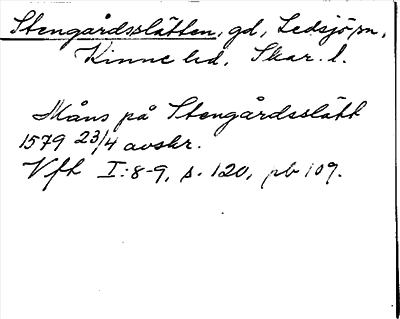 Stengårdsslätten, gd, Ledsjö sn,
Kinne hd, Skar. l.
Måns på Stengårdsslätt
1579 23/4 avskr.
Vfh I:8-9, s. 120, pb 109.